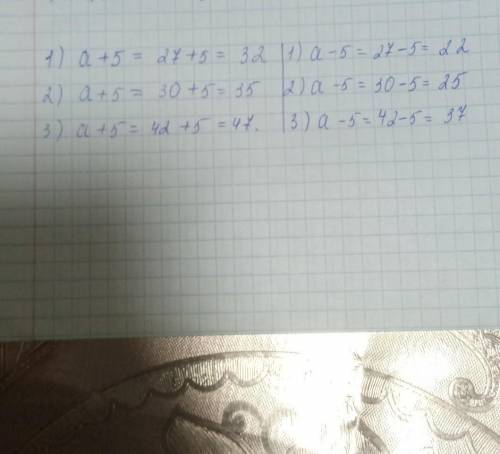 1) a + 5 = 27 + 5 = 32
2) a + 5 = 30 + 5 = 35
3) a + 5 = 42 + 5 = 47.
1) a - 5 = 27 - 5 = 22
2) a - 5 = 30 - 5 = 25
3) a - 5 = 42 - 5 = 37